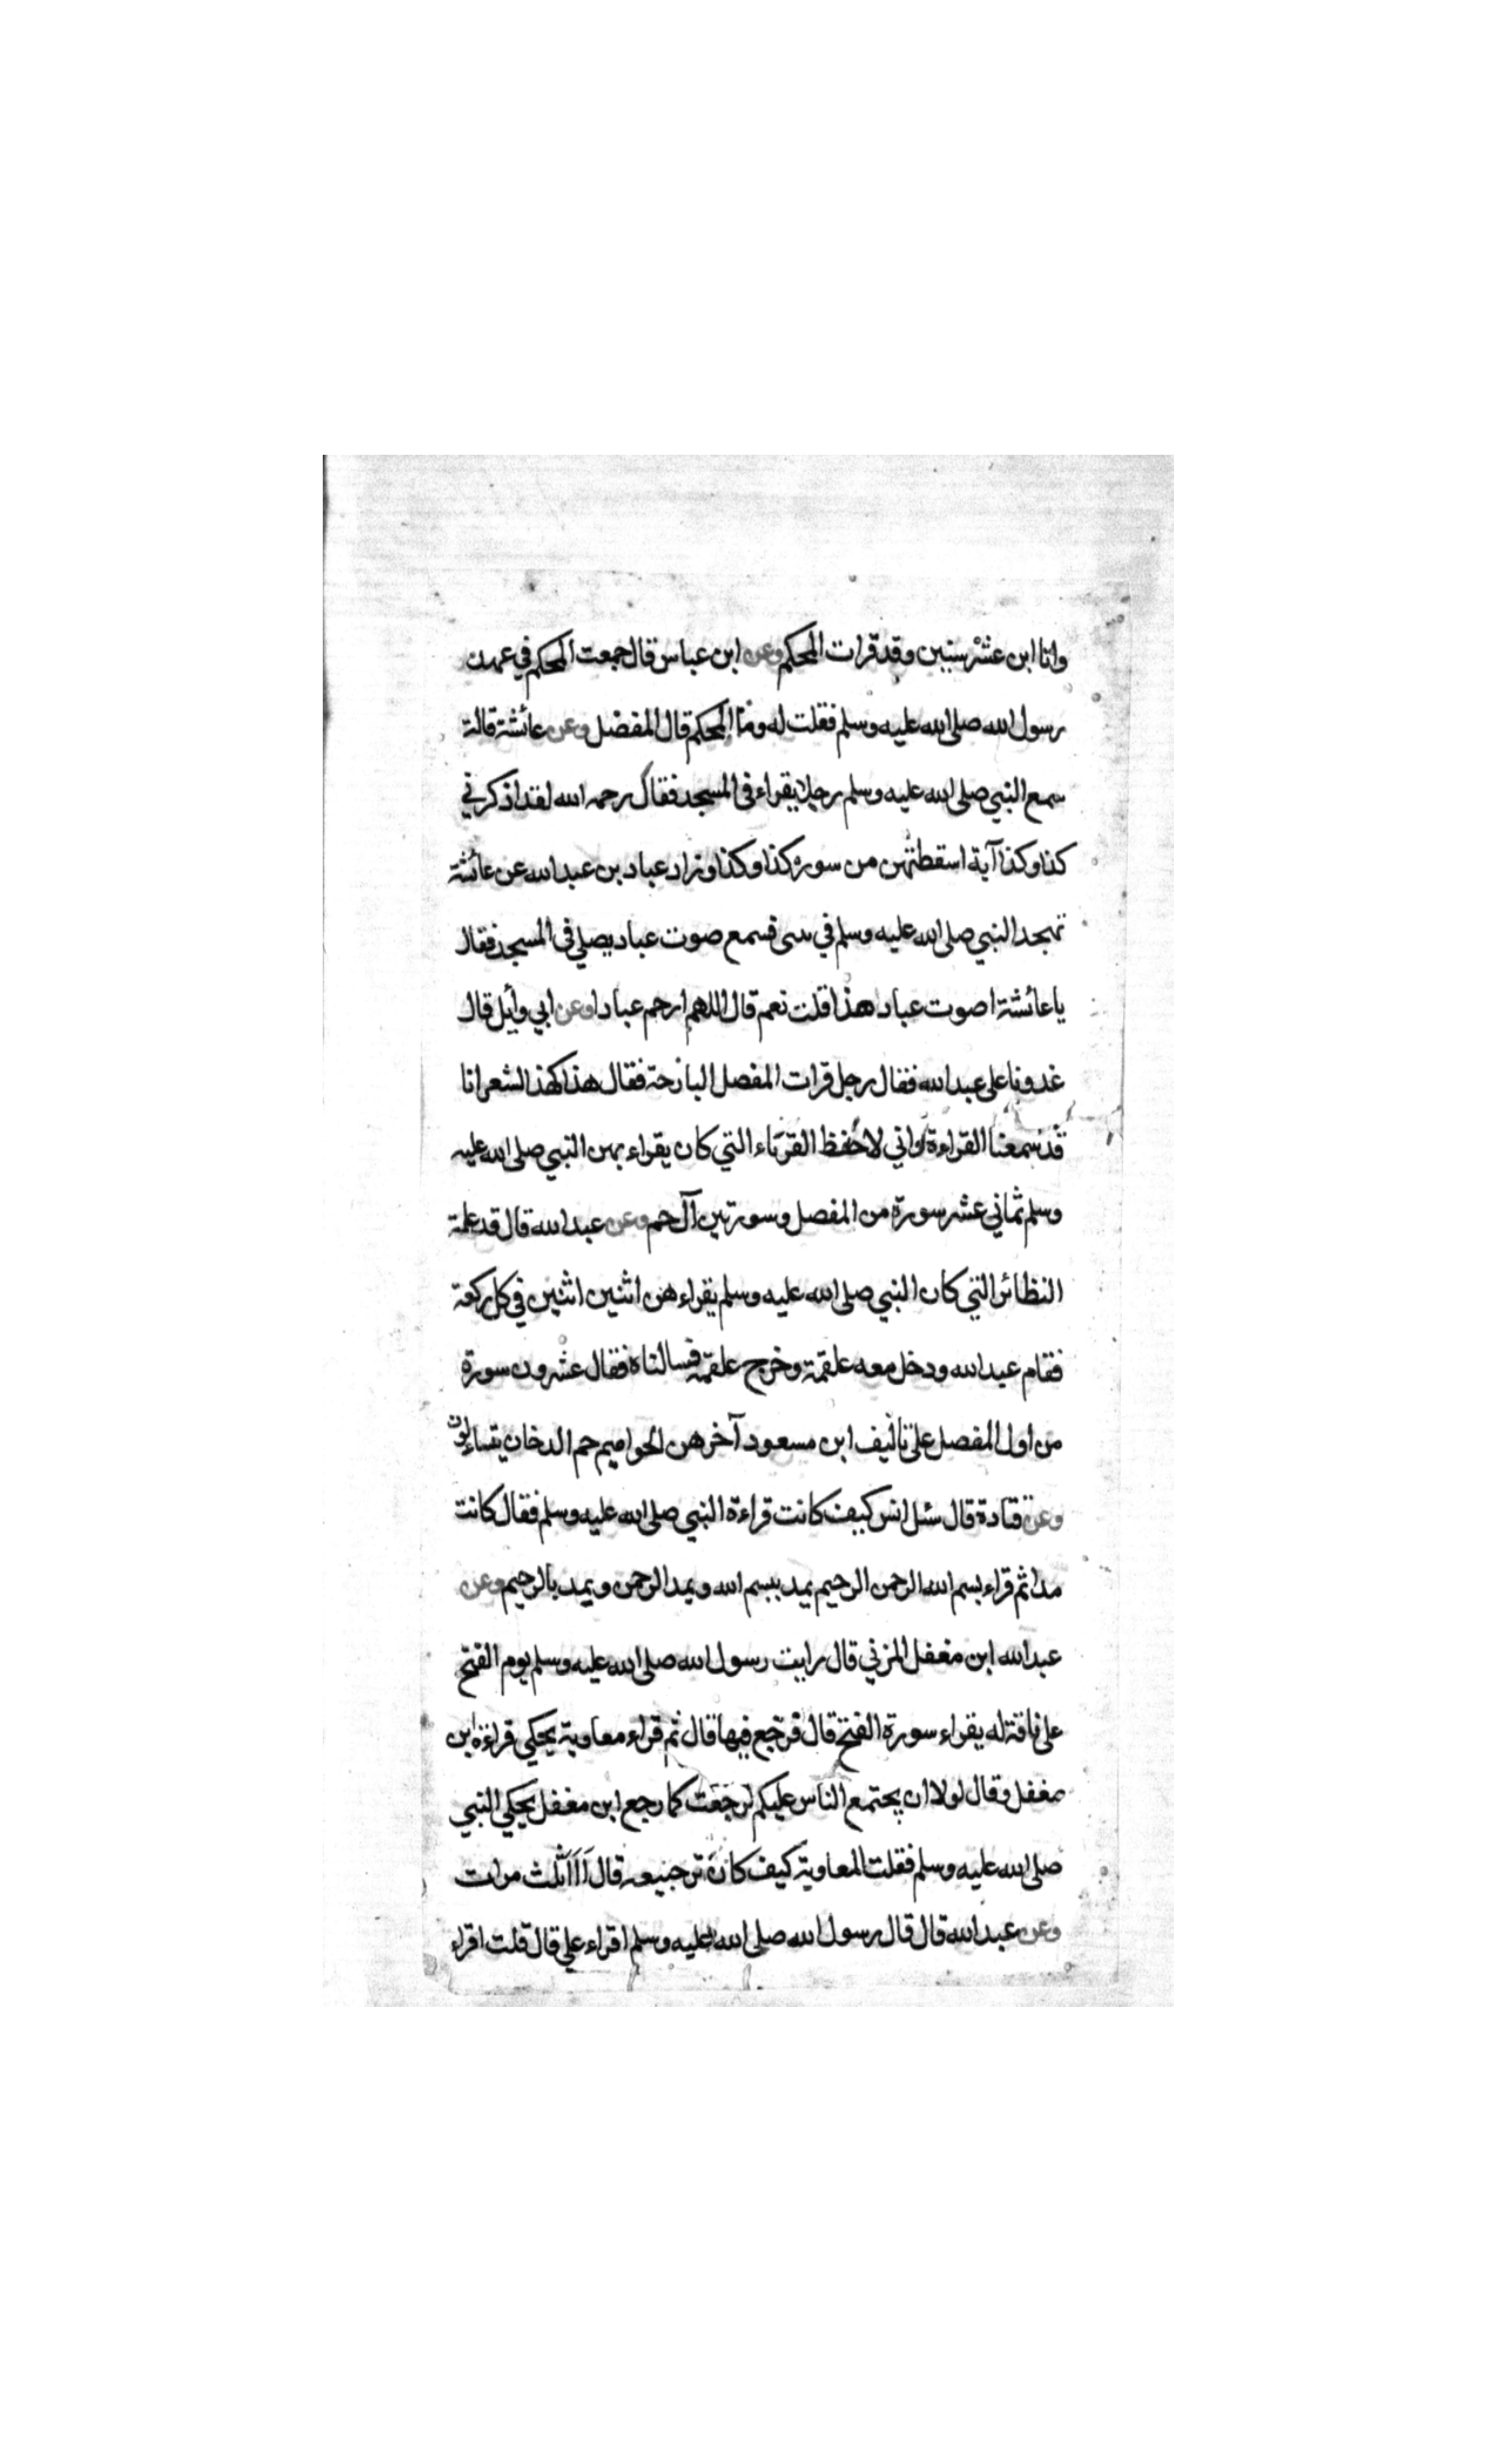 وانا ابن عشر سنين وقد قرات المحكم وعن ابن عباس قال جمعت المحكم في عهد
رسول الله صلى الله عليه وسلم فقلت له وما المحكم قال المفضل وعن عائشة قالة
سمع النبي صلى الله عليه وسلم رجلا يقراء فى المسجد فقال رحمه الله لقد اذكرني
كذا وكذا آية اسقطتهن من سورة كذا وكذا وزاد عباد بن عبد الله عن عائشة
تهجد النبي صلى الله عليه وسلم في بيتى فسمع صوت عباد يصلي فى المسجد فقال
يا عائشة اصوت عباد هذا قلت نعم قال اللهم ارحم عبادا وعن ابي وائل قال
غدونا على عبد الله فقال رجل قرات المفصل البارحة فقال هذا كهذ الشعر انا
قد سمعنا القراءة واني لاحفظ القرناء التي كان يقراء بهن النبي صلى الله عليه
وسلم ثماني عشر سورة من المفصل وسورتين آل حم وعن عبد الله قال قد علمة
النظائر التي كان النبي صلى الله عليه وسلم يقراء هن اثنين اثنين في كل ركعة
فقام عبد الله ودخل معه علقمة وخرج علقمة فسالناه فقال عشرون سورة
من اول المفصل على تاليف ابن مسعود آخرهن الحواميم حم الدخان يتساءلون
وعن قتادة قال سئل انس كيف كانت قراءة النبي صلى الله عليه وسلم فقال كانت
مدا ثم قراء بسم الله الرحمن الرحيم يمد ببسم الله ويمد الرحمن ويمد بالرحيم وعن
عبد الله ابن مغفل المزني قال رايت رسول الله صلى الله عليه وسلم يوم الفتح
على ناقة له يقراء سورة الفتح قال فرجع فيها قال ثم قراء معاوية يحكي قراءة ابن
مغفل وقال لولا ان يجتمع الناس عليكم لرجعت كما رجع ابن مغفل يحكي النبي
صلى الله عليه وسلم فقلت لمعاوية كيف كان ترجيعه قال آ آ آ ثلث مرات
وعن عبد الله قال قال رسول الله صلى الله عليه وسلم اقراء علي قال قلت اقراء